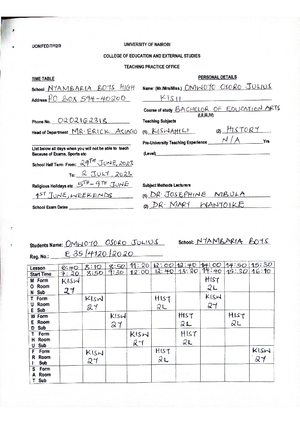 UON/FED/TP/2/3
UNIVERSITY OF NAIROBI
COLLEGE OF EDUCATION AND EXTERNAL STUDIES
TEACHING PRACTICE OFFICE
TIME TABLE
PERSONAL DETAILS
School NYAMBARIA BOYS HIGH
Name: (Mr./Mrs/Miss.) OMWOYO OSORO JULIUS
Address PO BOX 594-40200
KISII
Course of study BACHELOR OF EDUCATION ARTS
Phone No. 0202162318
Teaching Subjects
Head of Department MR. ERICK
(1) KISWAHILI (2) HISTORY
List below all days when you will not be able to teach
Because of Exams, Sports etc
Pre-University Teaching Experience N/A Yrs
(Level)
School Half Term From: 29TH JUNE, 2023
To 2 JULY, 2023
Religious Holidays etc 5TH - 9TH JUNE
1ST JUNE, WEEKENDS
School Exam Dates
Subject Methods Lecturers
(1) DR JOSEPHINE MBULA
(2) DR. MARY WANYOIKE
Students Name: OMWOYO OSORO JULIUS School: NYAMBARIA BOYS
Reg. No.: E35/4120/2020
Lesson 8:40
Start Time 7:20 8:50
M Form KISW HIST
O Room 2L
N Sub 2Y
T Form KISW KISW
U Room
E Sub 2Y 2Y
W Form KISW HIST
E Room
D Sub 2Y 2L
T Form KISW HIST
H Room
U Sub 2Y 2L
F Form KISW HIST KISW
R Room
I Sub 2Y 2L 2Y
S Form
A Room
T Sub